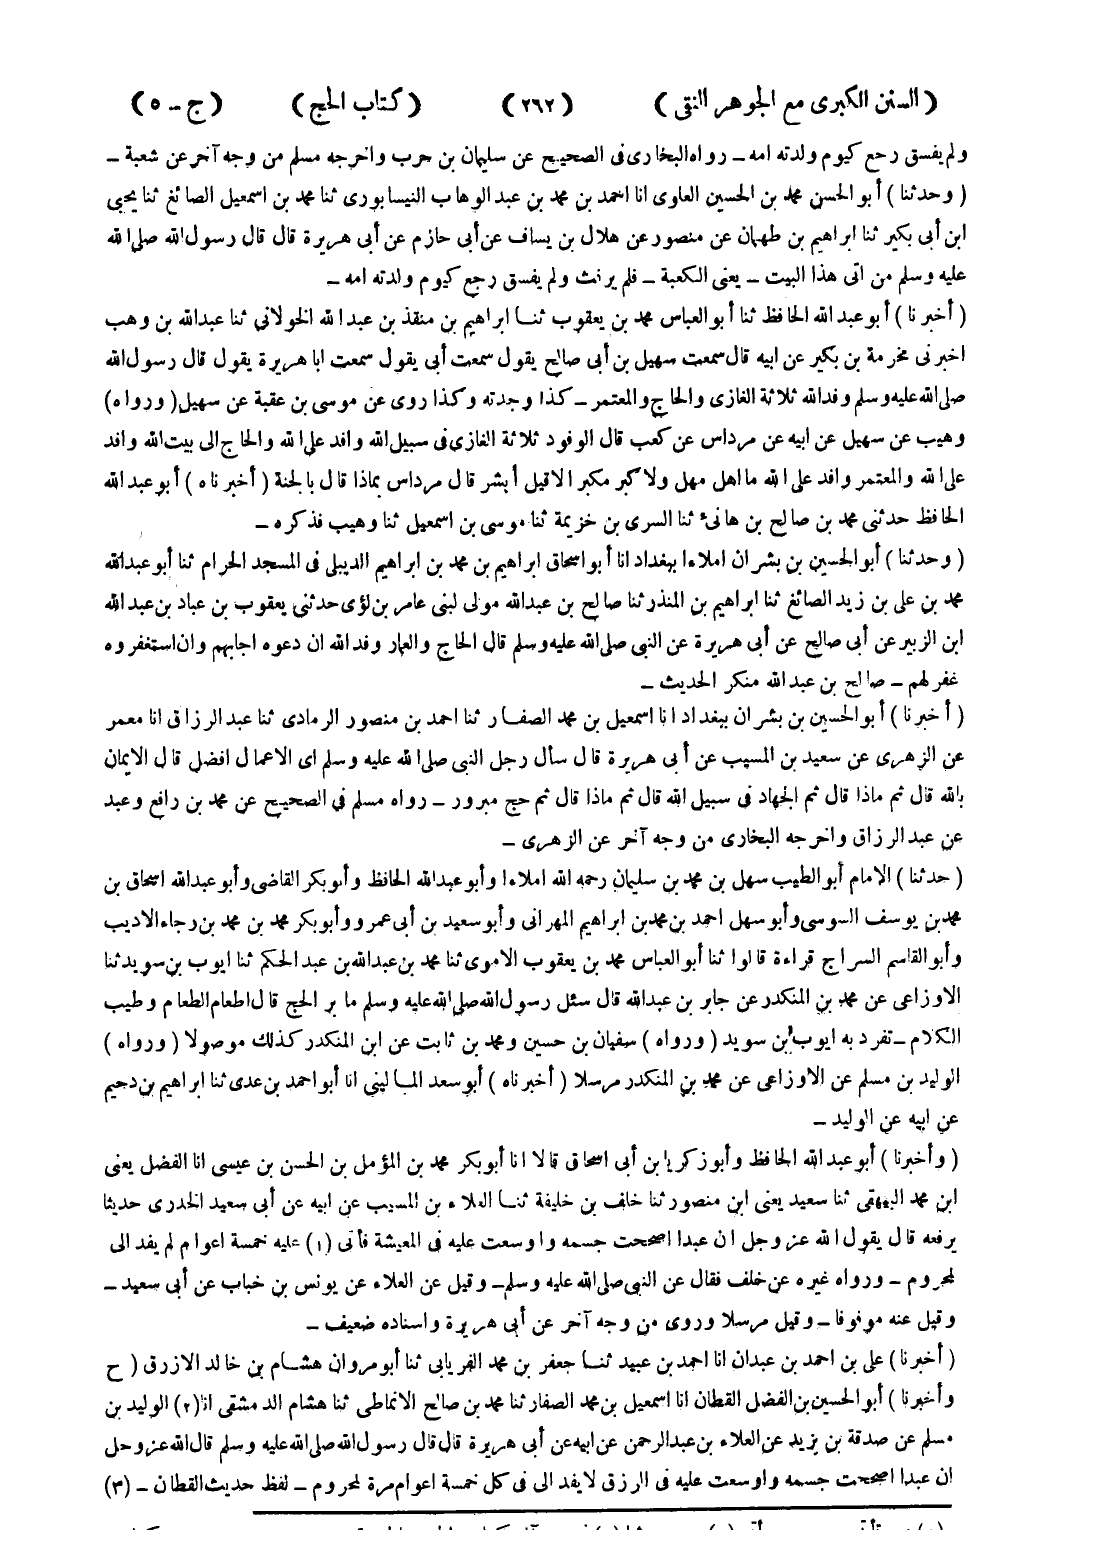 ( السنن الكبرى مع الجوهر النقى ) ( ٢٦٢ ) ( كتاب الحج ) ( ج ــ ٥ )
ولم يفسق رجع كيوم ولدته امه ــ رواه البخارى فى الصحيح عن سليمان بن حرب واخرجه مسلم من وجه آخر عن شعبة ــ
( وحدثنا ) أبو الحسن محمد بن الحسين العلوى انا احمد بن محمد بن عبد الوهاب النيسابورى ثنا محمد بن اسمعيل الصائغ ثنا يحيى
ابن أبى بكير ثنا ابراهيم بن طهمان عن منصور عن هلال بن يساف عن أبى حازم عن أبى هريرة قال قال رسول الله صلى الله
عليه وسلم من اتى هذا البيت ــ يعنى الكعبة ــ فلم يرفث ولم يفسق رجع كيوم ولدته امه ــ
( أخبرنا ) أبو عبد الله الحافظ ثنا أبو العباس محمد بن يعقوب ثنا ابراهيم بن منقذ بن عبد الله الخولانى ثنا عبد الله بن وهب
اخبرنى مخرمة بن بكير عن ابيه قال سمعت سهيل بن أبى صالح يقول سمعت أبى يقول سمعت ابا هريرة يقول قال رسول الله
صلى الله عليه وسلم وفد الله ثلاثة الغازى والحاج والمعتمر ــ كذا وجدته وكذا روى عن موسى بن عقبة عن سهيل ( ورواه )
وهيب عن سهيل عن ابيه عن مرداس عن كعب قال الوفود ثلاثة الغازى فى سبيل الله وافد على الله والحاج الى بيت الله وافد
على الله والمعتمر وافد على الله ما اهل مهل ولا كبر مكبر الا قيل أبشر قال مرداس بماذا قال بالجنة ( أخبرناه ) أبو عبد الله
الحافظ حدثنى محمد بن صالح بن هانئ ثنا السرى بن خزيمة ثنا موسى بن اسمعيل ثنا وهيب فذكره ــ
( وحدثنا ) أبو الحسين بن بشران املاءا ببغداد انا أبو اسحاق ابراهيم بن محمد بن ابراهيم الديبلى فى المسجد الحرام ثنا أبو عبد الله
محمد بن على بن زيد الصائغ ثنا ابراهيم بن المنذر ثنا صالح بن عبد الله مولى لبنى عامر بن لؤى حدثنى يعقوب بن عباد بن عبد الله
ابن الزبير عن أبى صالح عن أبى هريرة عن النبى صلى الله عليه وسلم قال الحاج والعمار وفد الله ان دعوه اجابهم وان استغفروه
غفر لهم ــ صالح بن عبد الله منكر الحديث ــ
( أخبرنا ) أبو الحسين بن بشران ببغداد انا اسمعيل بن محمد الصفار ثنا احمد بن منصور الرمادى ثنا عبد الرزاق انا معمر
عن الزهرى عن سعيد بن المسيب عن أبى هريرة قال سأل رجل النبى صلى الله عليه وسلم اى الاعمال افضل قال الايمان
بالله قال ثم ماذا قال ثم الجهاد فى سبيل الله قال ثم ماذا قال ثم حج مبرور ــ رواه مسلم فى الصحيح عن محمد بن رافع وعبد
عن عبد الرزاق واخرجه البخارى من وجه آخر عن الزهرى ــ
( حدثنا ) الامام أبو الطيب سهل بن محمد بن سليمان رحمه الله املاءا وأبو عبد الله الحافظ وأبو بكر القاضى وأبو عبد الله اسحاق بن
محمد بن يوسف السوسى وأبو سهل احمد بن محمد بن ابراهيم المهرانى وأبو سعيد بن أبى عمرو وأبو بكر محمد بن محمد بن رجاء الاديب
وأبو القاسم السراج قراءة قالوا ثنا أبو العباس محمد بن يعقوب الاموى ثنا محمد بن عبد الله بن عبد الحكم ثنا ايوب بن سويد ثنا
الاوزاعى عن محمد بن المنكدر عن جابر بن عبد الله قال سئل رسول الله صلى الله عليه وسلم ما بر الحج قال اطعام الطعام وطيب
الكلام ــ تفرد به ايوب بن سويد ( ورواه ) سفيان بن حسين ومحمد بن ثابت عن ابن المنكدر كذلك موصولا ( ورواه )
الوليد بن مسلم عن الاوزاعى عن محمد بن المنكدر مرسلا ( أخبرناه ) أبو سعد المالينى انا أبو احمد بن عدى ثنا ابراهيم بن دحيم
عن ابيه عن الوليد ــ
( وأخبرنا ) أبو عبد الله الحافظ وأبو زكريا بن أبى اسحاق قالا انا أبو بكر محمد بن المؤمل بن الحسن بن عيسى انا الفضل يعنى
ابن محمد البيهقى ثنا سعيد يعنى ابن منصور ثنا خلف بن خليفة ثنا العلاء بن المسيب عن ابيه عن أبى سعيد الخدرى حديثا
يرفعه قال يقول الله عز وجل ان عبدا اصححت جسمه واوسعت عليه فى المعيشة فأتى (١) عليه خمسة اعوام لم يفد الى
لمحروم ــ ورواه غيره عن خلف فقال عن النبى صلى الله عليه وسلم ــ وقيل عن العلاء عن يونس بن خباب عن أبى سعيد ــ
وقيل عنه موقوفا ــ وقيل مرسلا وروى من وجه آخر عن أبى هريرة واسناده ضعيف ــ
( أخبرنا ) على بن احمد بن عبدان انا احمد بن عبيد ثنا جعفر بن محمد الفريابى ثنا أبو مروان هشام بن خالد الازرق ( ح
وأخبرنا ) أبو الحسين بن الفضل القطان انا اسمعيل بن محمد الصفار ثنا محمد بن صالح الانماطى ثنا هشام الدمشقى انا (٢) الوليد بن
مسلم عن صدقة بن يزيد عن العلاء بن عبد الرحمن عن ابيه عن أبى هريرة قال قال رسول الله صلى الله عليه وسلم قال الله عز وجل
ان عبدا اصححت جسمه واوسعت عليه فى الرزق لا يفد الى فى كل خمسة اعوام مرة لمحروم ــ لفظ حديث القطان ــ (٣)